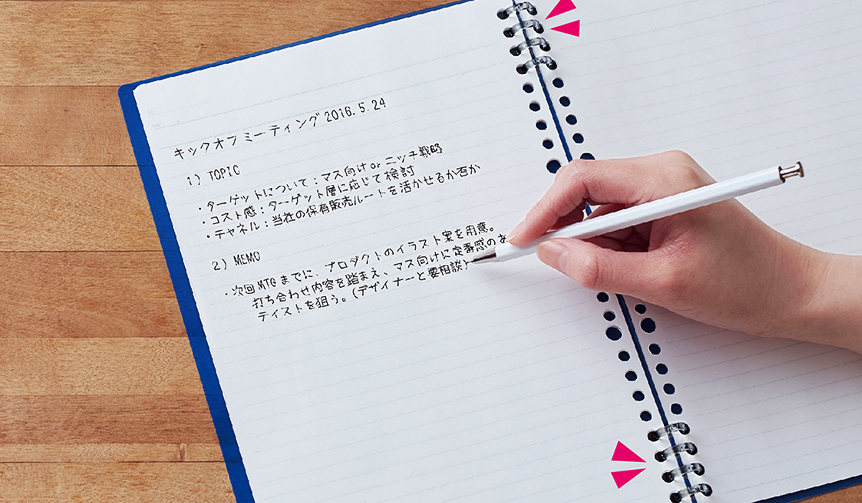 キックオフミーティング 2016.5.24
1) TOPIC
・ターゲットについて：マス向け or ニッチ戦略
・コスト感：ターゲット層に応じて検討
・チャネル：当社の保有販売ルートを活かせるか否か
2) MEMO
・次回MTGまでに、プロダクトのイラスト案を用意。
打ち合わせ内容を踏まえ、マス向けに定番感のあ
テイストを狙う。(デザイナーと要相談)